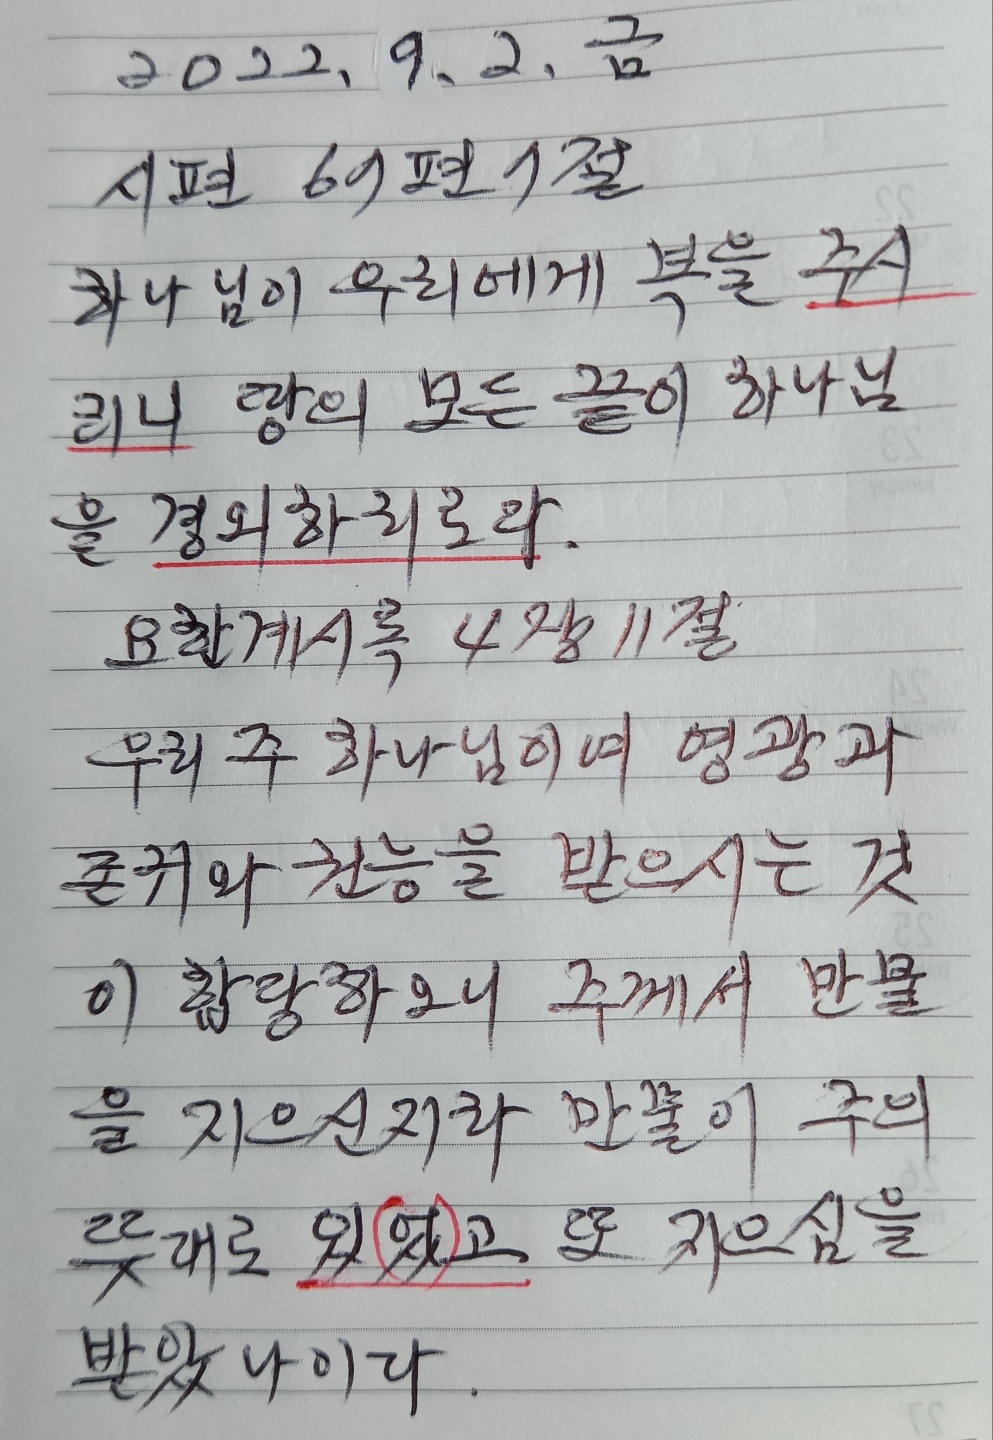 2022. 9. 2. 금
시편 67편 7절
하나님이 우리에게 복을 주시
리니 땅의 모든 끝이 하나님
을 경외하리로다.
요한계시록 4장 11절
우리 주 하나님이여 영광과
존귀와 권능을 받으시는 것
이 합당하오니 주께서 만물
을 지으신지라 만물이 주의
뜻대로 있었고 또 지으심을
받았나이다.